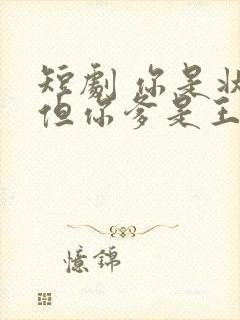 短劇 你是
但你爹是王
憶錦